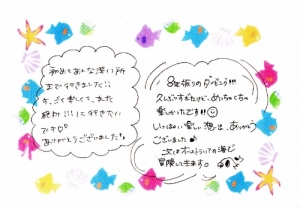 初めてあんな深い所
まで行きました!!
すっごく楽しくて、また
絶対ここに行きたい
です♡
ありがとうございました!
8年振りのダイビング!!!
久しぶりすぎたけど、めっちゃくちゃ
楽しかったです!!
いっぱい楽しい想い、ありがとう
ございました♪
次はオーストラリアの海で
冒険してきます。